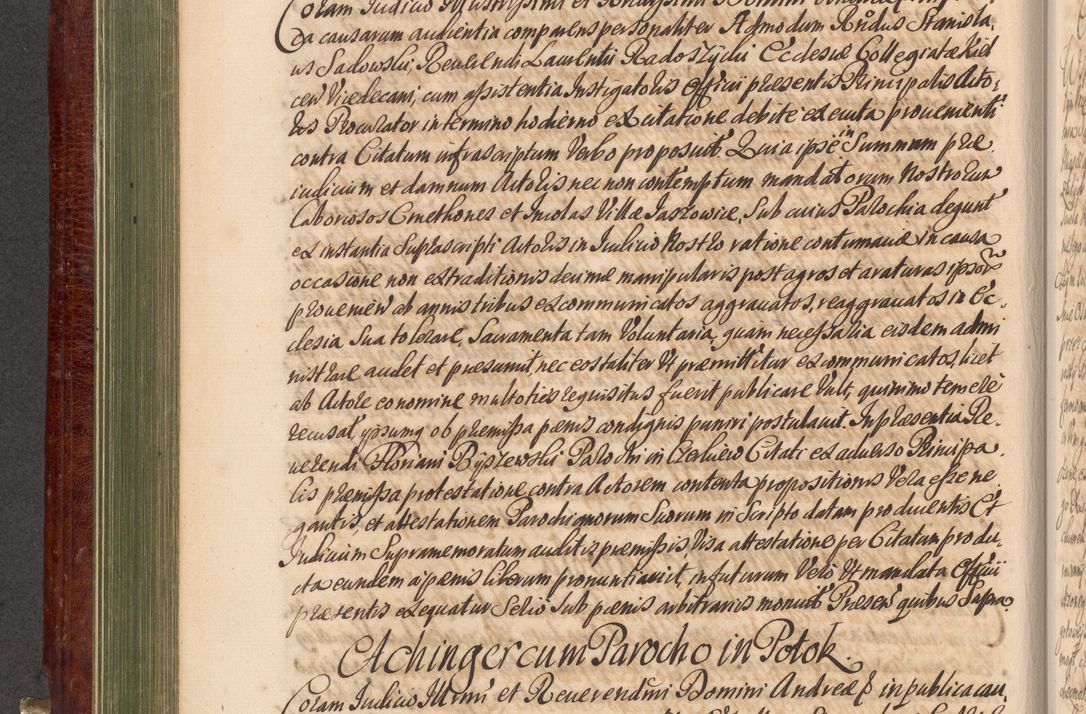 Coram Judicio Illustrissimi et Rndissimi Domini
ta causarum audientia comparens personaliter Admodum Rndus Stanisla
us Sadowski, Reuerendi Laurentii Radoszycki Ecclesiæ Collegiatæ Kiel
cen Vicedecani, cum assistentia Instigatoris Officii præsentis Principalis Acto,
ris Procurator in termino hodierno ex citatione debite executa prouenienti
contra Citatum infrascriptum Verbo proposuit Quia ipse in Summum præ
iudicium et damnum Actoris nec non contemptum mandatorum Nostrorum
Laboriosos Cmethones et Incolas Villæ Jaszowice, Sub cuius Parochia degunt
ex instantia Suprascripti Actoris in Judicio Nostro ratione contumaciæ in causa
occasione non extraditionis decimæ manipularis post agros et araturas ipsor
prouenien ab annis tribus excommunicatos aggrauatos, reaggrauatos in Ec,
clesia Sua tolerare, Sacramenta tam Voluntaria, quam necessaria eisdem admi
nistrare audet et præsumit, nec eos taliter Ut præmittitur excommunicatos, licet
ab Actore eo nomine multoties requisitus fuerit publicare Vult, quinimo temere
recusat, ipsumq ob præmissa pænis condignis puniri postulauit. In præsentia Re,
uerendi Floriani Byszewski Parochi in Citati ex aduerso Principa
lis præmissa protestatione contra Actorem contenta propositionis Vera esse ne
gantis, et attestationem Parochianorum Suorum in Scripto datam producentis Et
Judicium Supramemoratum auditis præmissis, Visa attestatione per Citatum produ,
cta eundem a pænis liberum pronuntiauit, in futurum Vero Ut mandata Officii
præsentis exequatur Serio Sub pænis arbitrariis monuit Presen quibus Supra
Achinger cum Parocho in Potok.
Coram Judicio Illmi et Reuerendmi Domini Andreæ in publica cau,